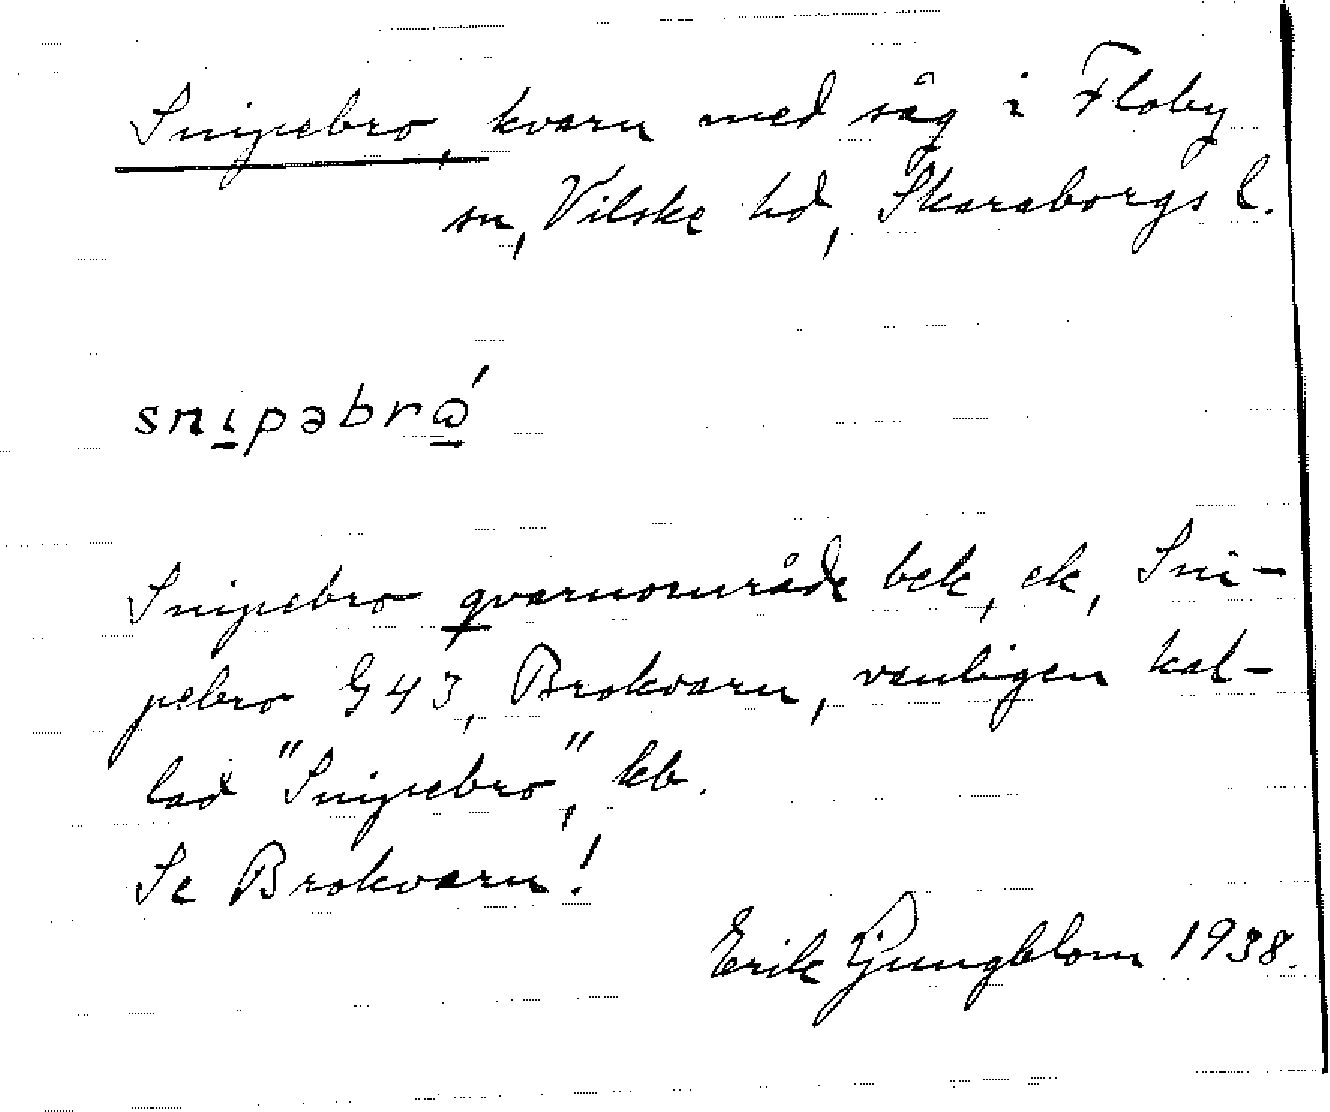 Snipebro, kvarn med såg i Floby
sn, Vilske hd, Skaraborgs l.
snipəbrɷ́
Snipebro qvarnområde bek, ek, Sni-
pebro G43, Brokvarn, vanligen kal-
lad "Snipebro", kb.
Se Brokvarn!
Erik Ljungblom 1938.